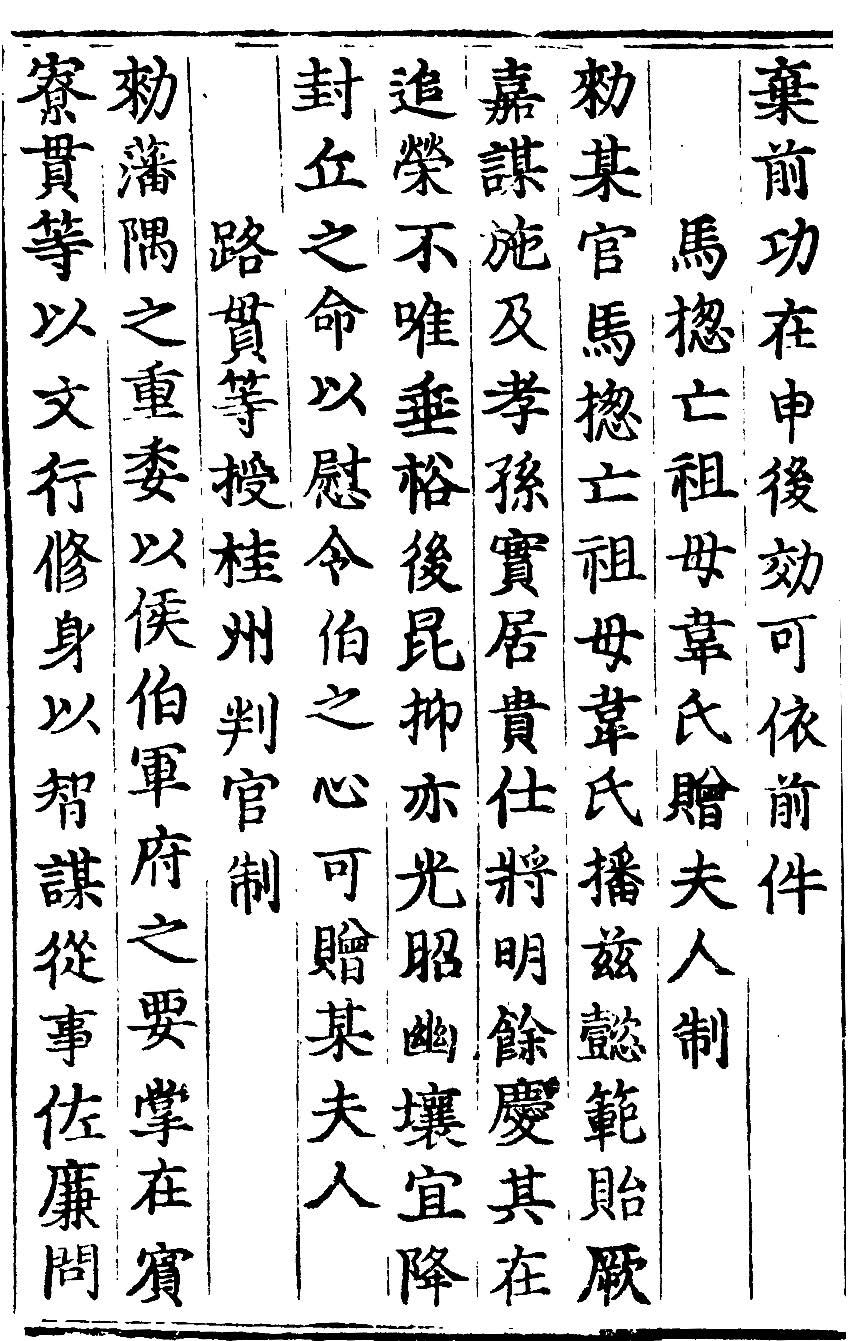 棄前功在申後効可依前件
馬揔亡祖母韋氏贈夫人制
勑某官馬揔亡祖母韋氏播兹懿範貽厥
嘉謀施及孝孫實居貴仕將明餘慶其在
追榮不唯垂裕後昆抑亦光昭幽壤宜降
封丘之命以慰令伯之心可贈某夫人
路貫等授桂州判官制
勑藩隅之重委以侯伯軍府之要掌在賓
寮貫等以文行修身以智謀從事佐廉問